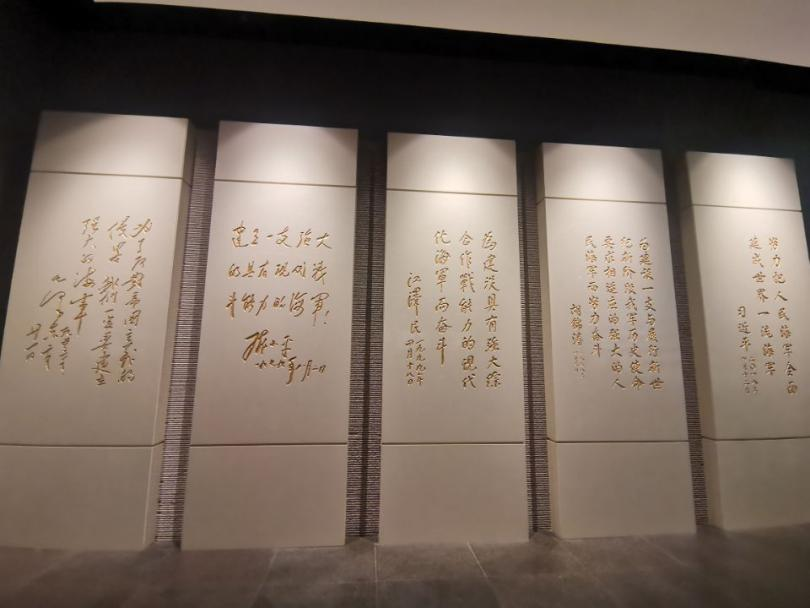 为了反对帝国主义的
侵略 我们一定要建立
强大的海军
毛泽东
建立一支强大
的具有现代战
斗能力的海军！
邓小平
一九七九年
為建设具有强大綜
合作戰能力的現代
化海軍而奋斗
江澤民
一九九九年
四月十八日
为建设一支与履行新世
纪新阶段我军历史使命
要求相适应的强大的人
民海军而努力奋斗
胡锦涛
努力把人民海军全面
建成世界一流海军
习近平